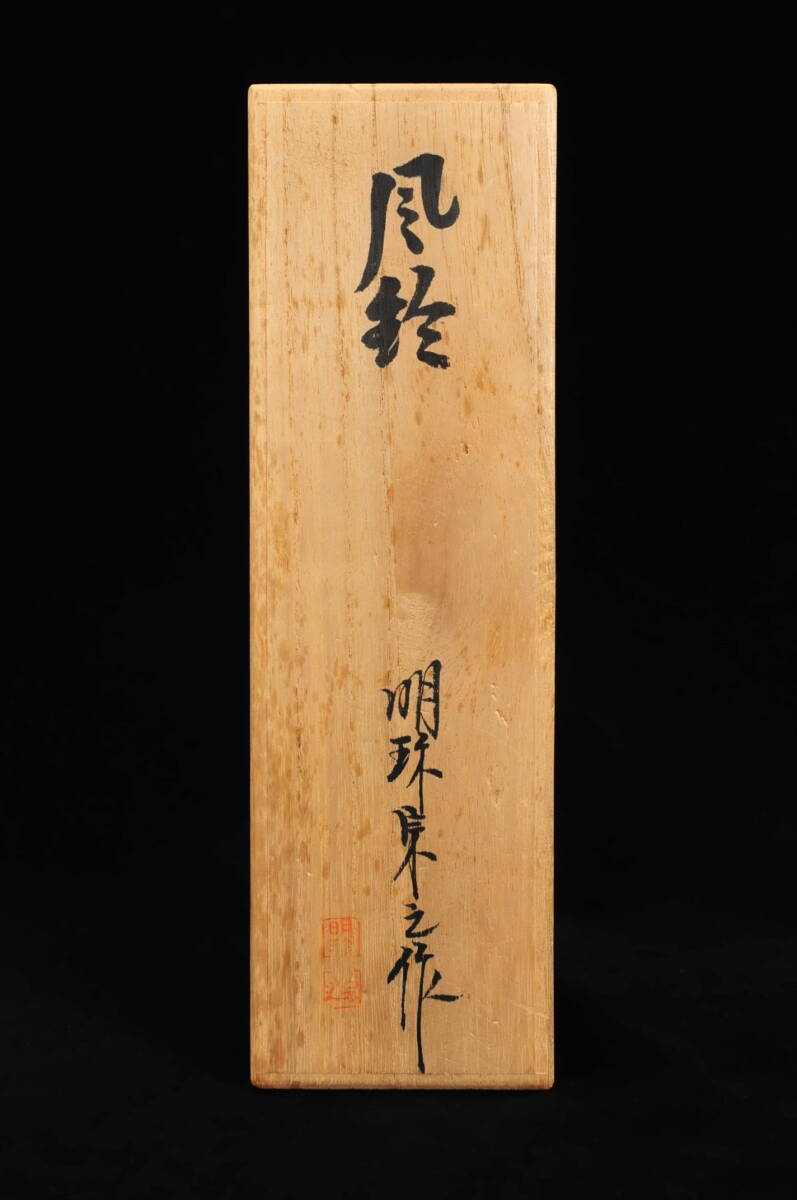 風鈴
明珎宗之作